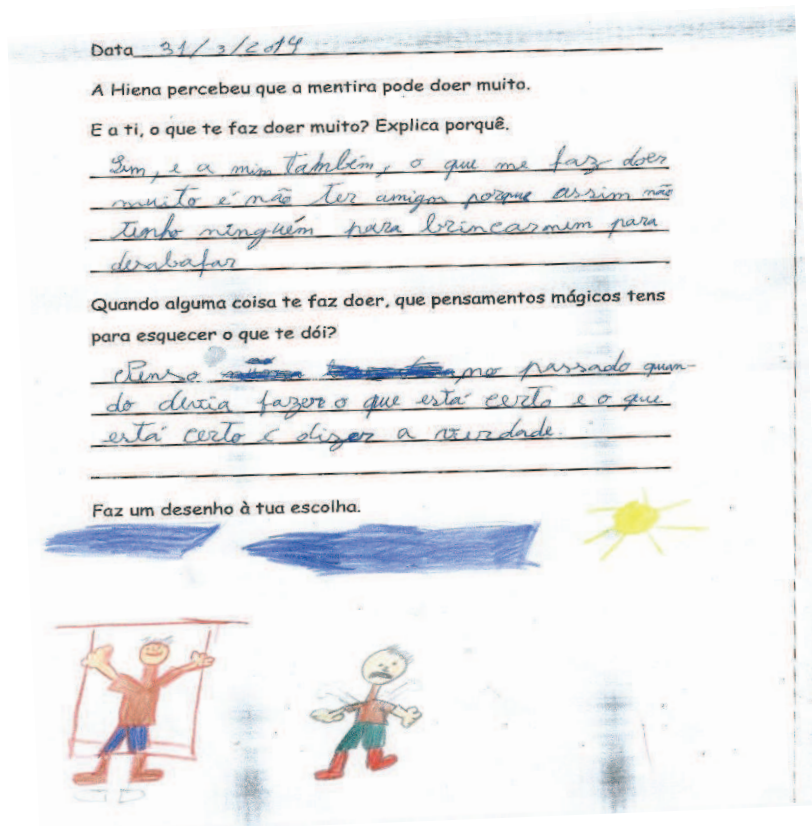 Data 31/3/2014
A Hiena percebeu que a mentira pode doer muito.
E a ti, o que te faz doer muito? Explica porquê.
Sim, e a mim também, o que me faz doer
muito é não ter amigos porque assim não
tenho ninguém para brincar nem para
desabafar
Quando alguma coisa te faz doer, que pensamentos mágicos tens
para esquecer o que te dói?
Penso no passado quan-
do devia fazer o que está certo e o que
está certo é dizer a verdade.
Faz um desenho à tua escolha.